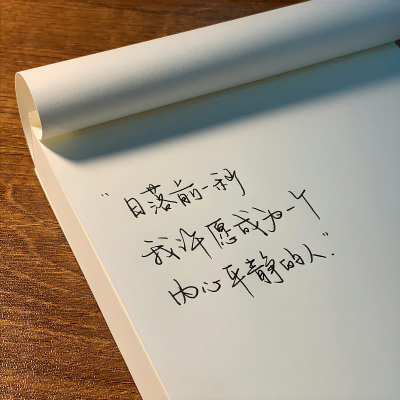 "日落前一秒
我许愿成为一个
内心平静的人."